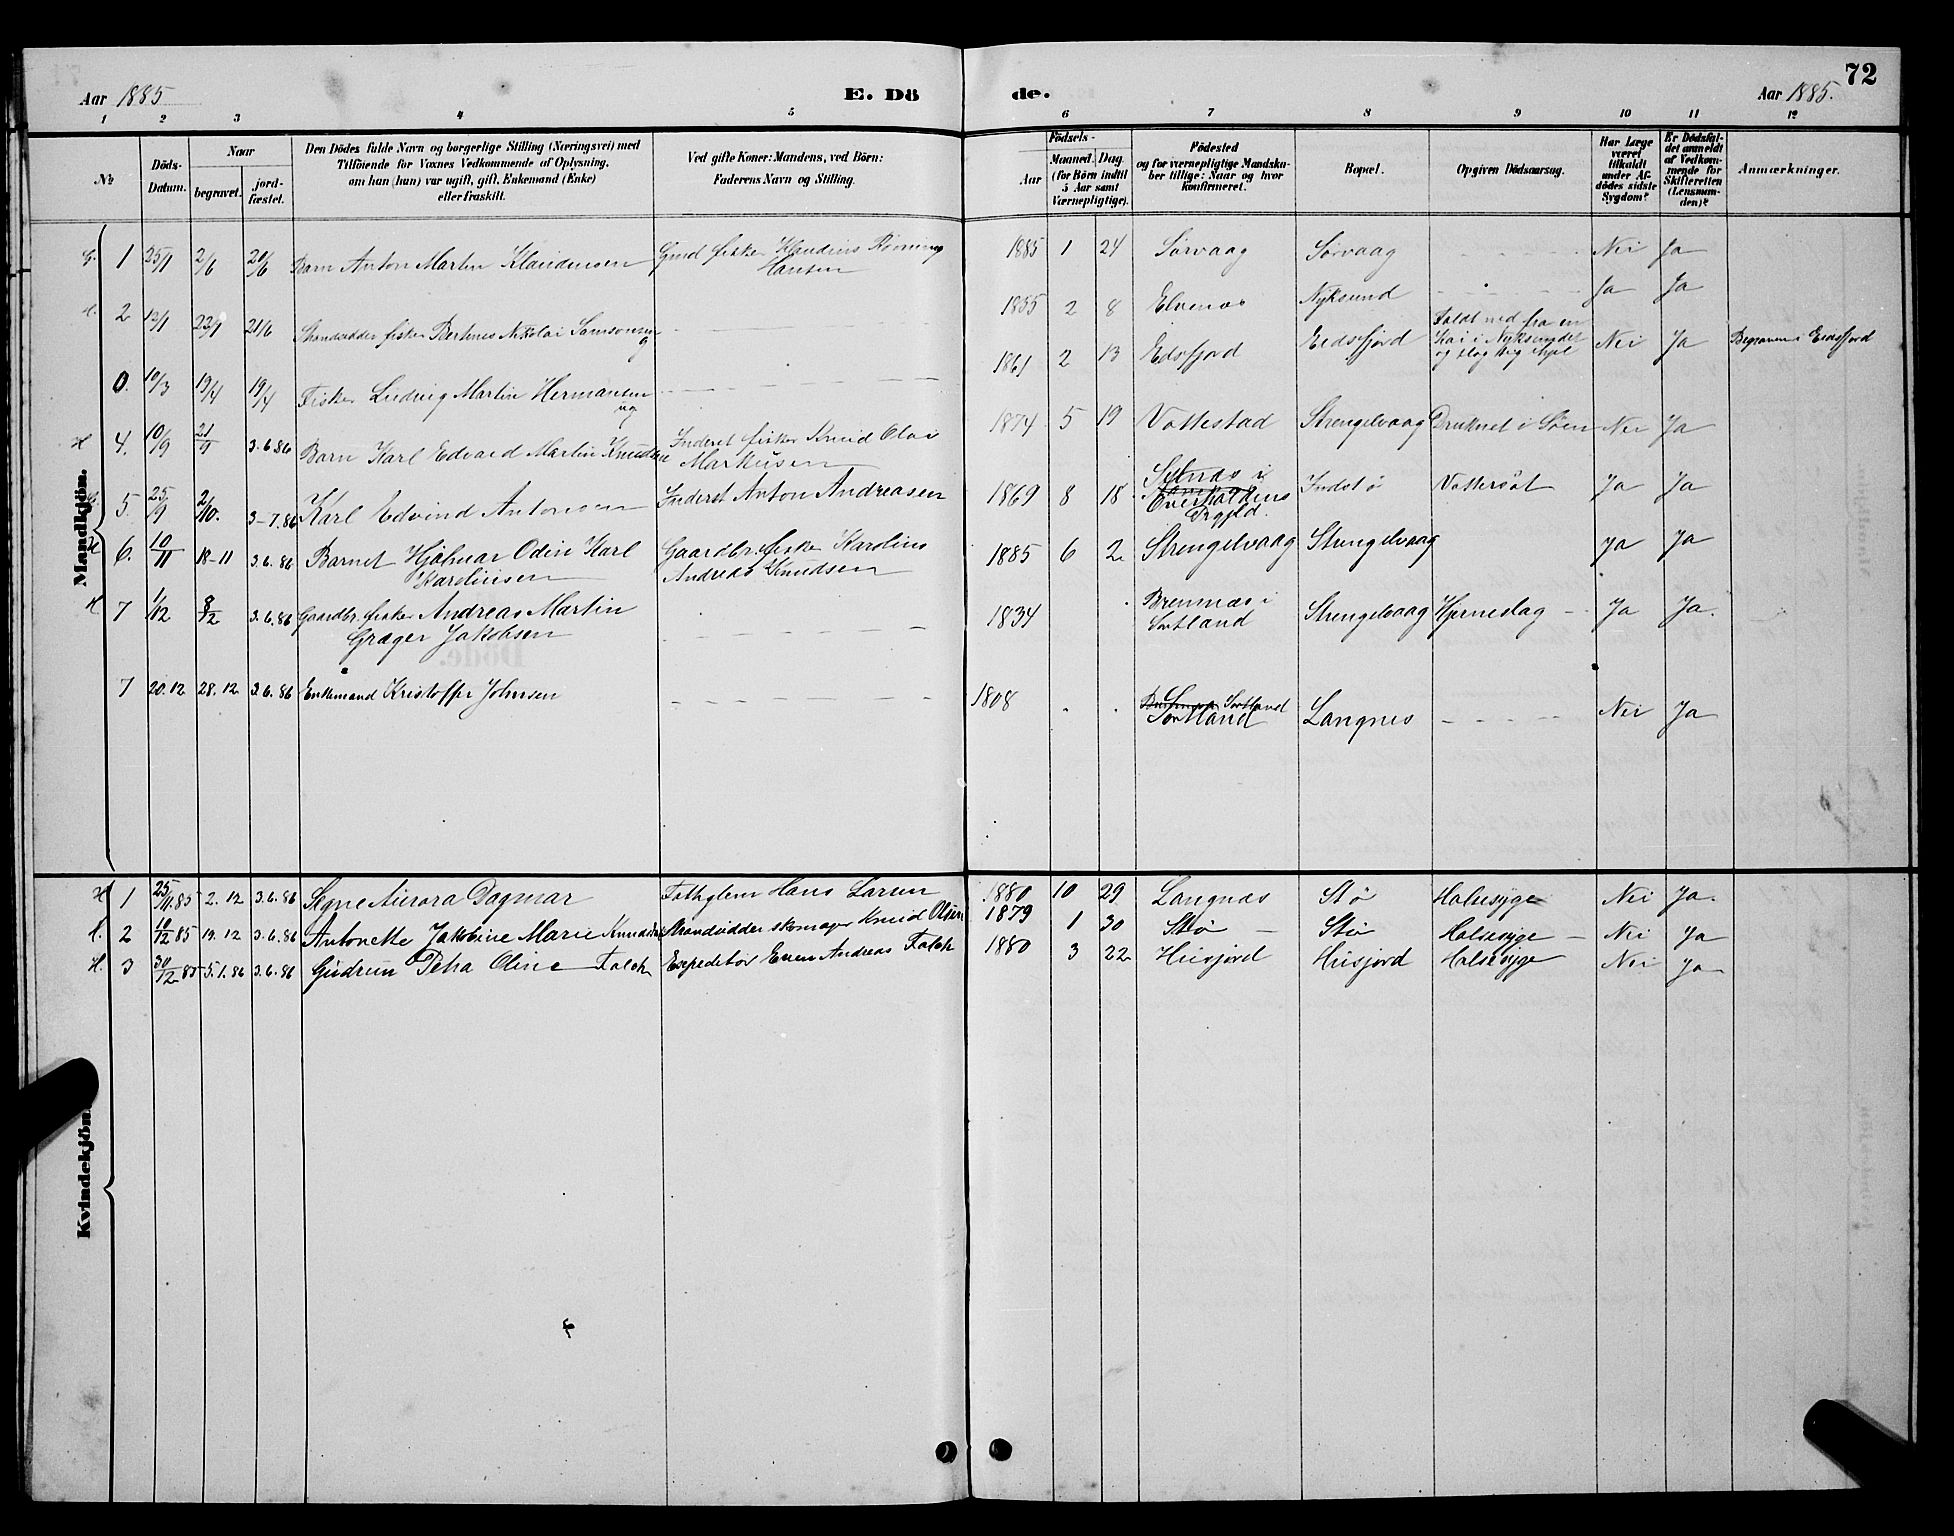 72
Aar 1885
E. Dö
de.
Aar 1885.
1 2 3 4 5 6 7 8 9 10 11 12
No
Döds-
Datum.
Naar
begravet.
jord-
fæstet.
Den Dödes fulde Navn og borgerlige Stilling (Næringsvei) med
Tilföiende for Voxnes Vedkommende af Oplysning,
om han (hun) var ugift, gift, Enkemand (Enke)
eller fraskilt.
Ved gifte Koner: Mandens, ved Börn:
Faderens Navn og Stilling.
Födsels-
Aar
Maaned. Dag.
(for Börn indtil
5 Aar samt
Værnepligtige).
Födested
og for værnepligtige Mandska-
ber tillige: Naar og hvor
konfirmeret.
Bopæl.
Opgiven Dödsaarsag.
Har Læge
været
tilkaldt
under Af-
dödes sidste
Sygdom?
Er Dödsfal-
det anmeldt
af Vedkom-
mende for
Skifteretten
(Lensman-
den)?
Anmærkninger.
Mandkjön.
1 25/1 2/6 20/6 Barn Anton Martin Klaudiusen Gmd fisker Klaudius Rönning 1885 1 24 Sörvaag Sörvaag Nei Ja
Hansen
2 12/1 23/1 21/6 Strandsidder fisker Nikolai Samsonsen 1855 2 8 Elvenæs Nyksund Ja Ja
g
0. 10/3 19/4 19/4 Fisker Ludvig Martin Hermansen 1861 2 13 Edsfjord Eidsfjord Faldt ned fra en Nei Ja Begraven i Eidsfjord
ug Kai i
og slog sig ihjel
H 4. 10/9 21/9 3.6.86 Barn Karl Edvard Martin Knudsen Inderst fisker Knud Olai 1874 5 19 Vottestad Strengelvaag Druknet i Söen Nei Ja
Markusen
5. 25/9 2/10. 3-7.86 Karl Edvind Antonsen Inderst Anton Andreasen 1869 8 18 i Indstö Vattersot Ja Ja
Overhaldens
Prgjld.
H 6. 10/11 18-11 3.6.86 Barnet Hjalmar Odin Karl Gaardbr. fisker Karolius 1885 6 2 Strengelvaag Strengelvaag Ja Ja
Karoliusen Andreas Knudsen
H 7 1/12 8/12 3.6.86 Gaardbr. fisker Andreas Martin 1834 Brennæs i Strengelvaag Hjerneslag Ja Ja.
Grager Jakobsen Sortland
7 20.12 28.12 3.6.86 Enkemand Kristoffer Johnsen 1808 Sortland Langnes Nei Ja
Sortland
Kvindekjön.
H 1 25/11.85 2.12 3.6.86 Signe Aurora Dagmar Hans Larsen 1880 10 29 Langnæs Stö Halsesyge Nei Ja.
H. 2 10/12 85 19.12 3.6.86 Antonette Jakobine Marie Knudsen Strandsidder skomager Knud Olsen 1879 1 30 Stö Stö Halsesyge Nei Ja
H. 3 30/12 85 5.1.86 3.6.86 Gudrun Petra Oline Falch Expeditör Even Andreas Falch 1880 3 22 Husjord Husjord Halsesyge Nei Ja